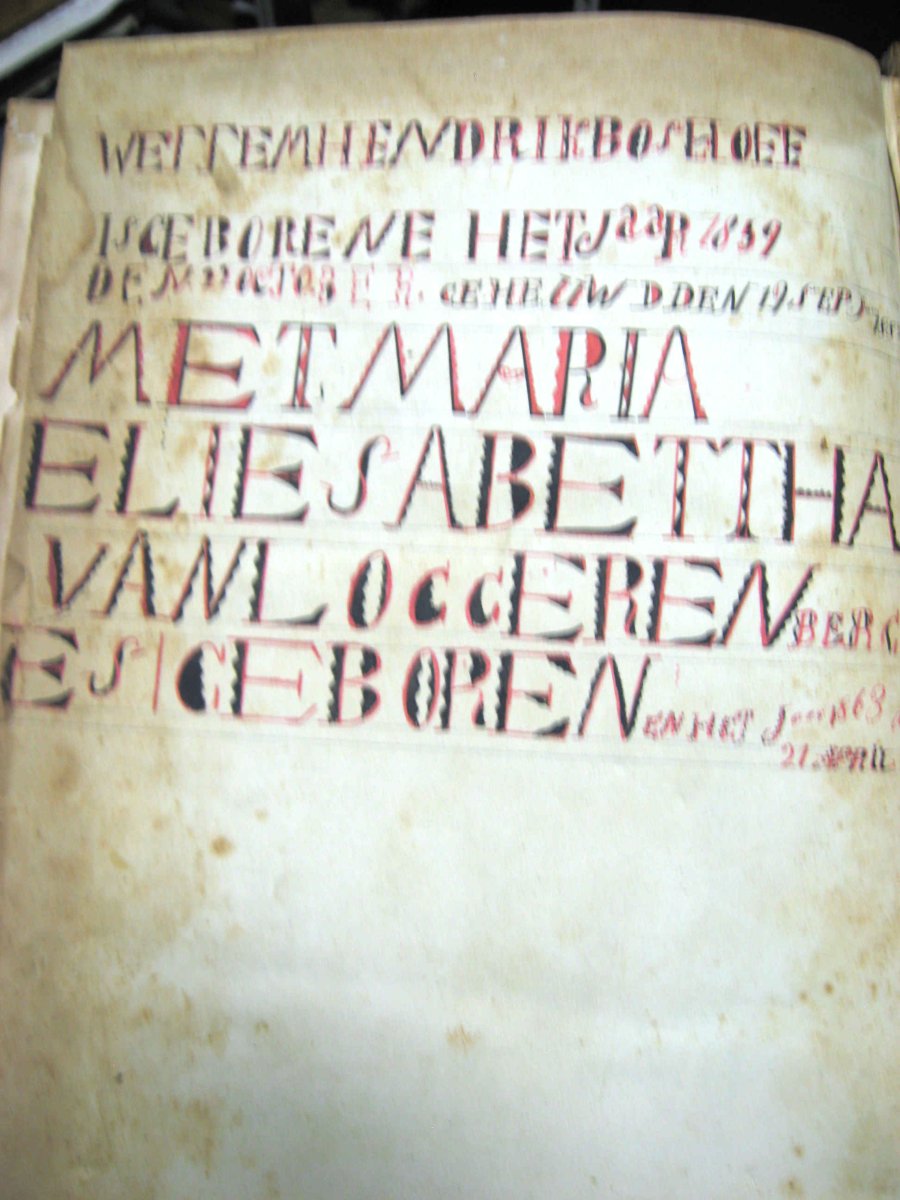 WELLEM HENDRIK BOSHOFF
IS GEBORENE HET JaaR 1859
DEN 22 OCTOBER. GEHEUWD DEN 19 SEP
MET MARIA
ELIESABETTHA
VAN LOGGERENBERG
ES GEBOREN EN HET Jaar 1863
21 APRIL